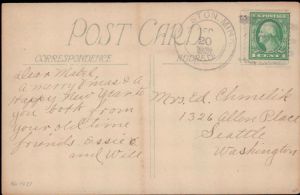 POST CARD
CORRESPONDENCE
ADDRESS
DEC
20
Dear Mabel,
A merry Xmas & A
Happy New Year to
you both from
your old time
friends Essie
and Will
Mrs. Ed. Chmelik
1326 Allen Place
Seattle
Washington